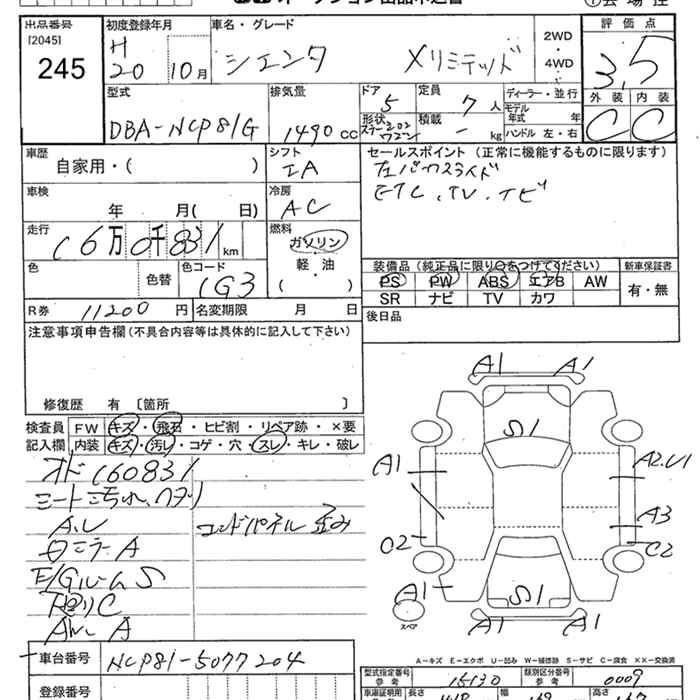 出品番号
[2045]
245
初度登録年月
H
20 10月
車名・グレード
シエンタ Xリミテッド
2WD
・
4WD
評価点
3.5
外装 内装
C C
型式
DBA-NCP81G
排気量
1490 cc
ドア
5
定員
7 人
形状
積載
- kg
ディーラー・並行
モデル
年式 年
ハンドル 左・右
車歴
自家用・( )
シフト
IA
車検
年 月( 日)
冷房
AC
走行
16万0千831 km
燃料
ガソリン
・
軽・油
( )
色 色替 色コード
1G3
セールスポイント(正常に機能するものに限ります)
左パワスライド
ETC、TV、ナビ
装備品(純正品に限り○をつけてください)
PS PW ABS エアB AW
SR ナビ TV カワ
新車保証書
有・無
R券 11200 円 名変期限 月 日
後日品
注意事項申告欄(不具合内容等は具体的に記入して下さい)
修復歴 有 〔箇所 〕
検査員 FW キズ・飛石・ヒビ割・リペア跡・×要
記入欄 内装 キズ・汚レ・コゲ・穴・スレ・キレ・破レ
オド160831
シート汚れ、ヘタリ
A、U
コンドパネル 歪み
ミラーA
E/GルームS
下廻りC
A
A1 A1
S1
A1
A2、U1
A3
C2
C2
A1
S1
A1 A1
スペア
A-キズ E-エクボ U-凹み W-補修跡 S-サビ C-腐食 XX-交換済
車台番号 NCP81-5077204
登録番号
型式指定番号
参考
15130
類別区分番号
参考
0009
車庫証明用 長さ 幅 高